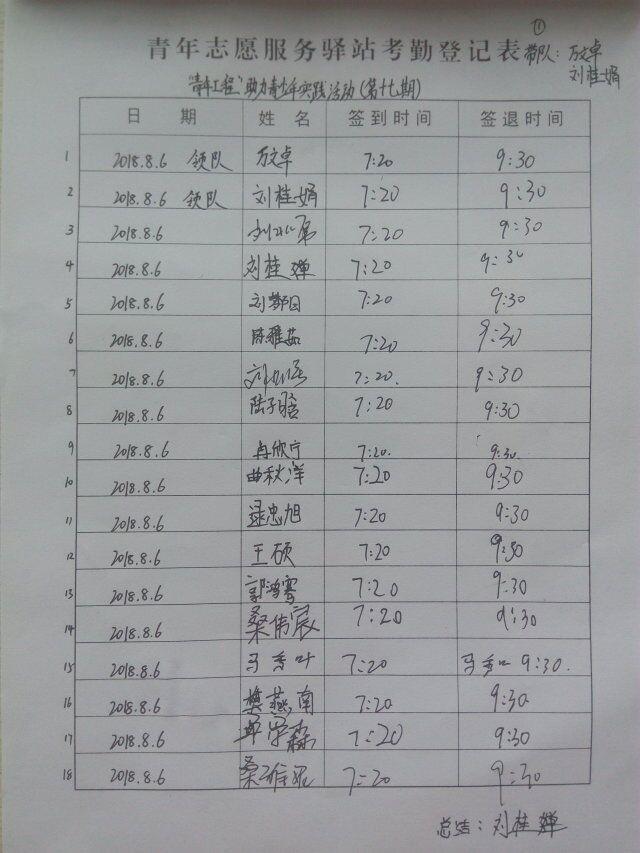 ①
青年志愿服务驿站考勤登记表 带队: 万文卓
刘桂娟
"青年工程"助力青少年实践活动(第十七期)
日 期 姓 名 签到时间 签退时间
1 2018.8.6 领队 万文卓 7:20 9:30
2 2018.8.6 领队 刘桂娟 7:20 9:30
3 2018.8.6 7:20 9:30
4 2018.8.6 刘桂婵 7:20 9:30
5 2018.8.6 7:20 9:30
6 2018.8.6 陈雅茹 7:20 9:30
7 2018.8.6 7:20. 9:30
8 2018.8.6 陆子晗 7:20 9:30
9 2018.8.6 冉欣宁 7:20. 9:30.
10 2018.8.6 曲秋洋 7:20 9:30
11 2018.8.6 逯忠旭 7:20 9:30
12 2018.8.6 王硕 7:20 9:30
13 2018.8.6 郭鸿骞 7:20 9:30
14 2018.8.6 桑伟宸 7:20 9:30
15 2018.8.6 马秀叶 7:20 马秀 9:30.
16 2018.8.6 樊燕南 7:20 9:30
17 2018.8.6 7:20 9:30
18 2018.8.6 7:20 9:30
总结: 刘桂婵